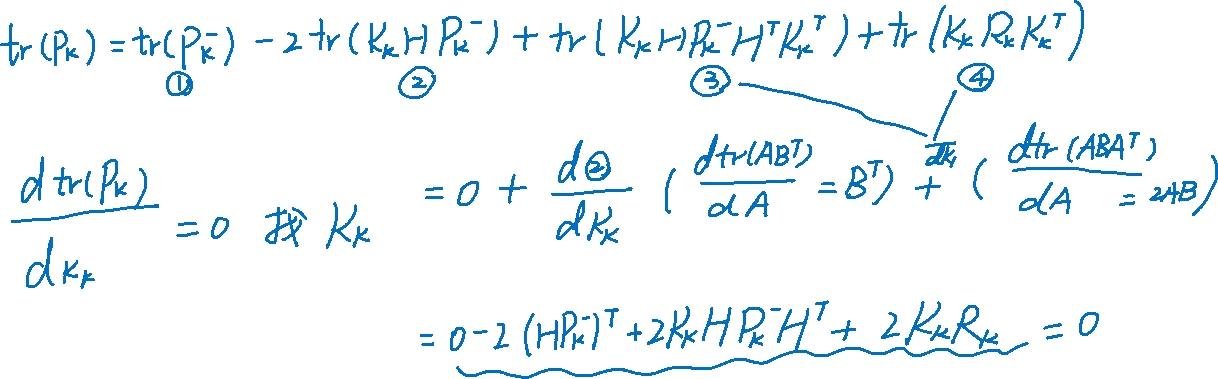 tr(Pₖ) = tr(Pₖ⁻) - 2tr(KₖHPₖ⁻) + tr(KₖHPₖ⁻HᵀKₖᵀ) + tr(KₖRₖKₖᵀ)
① ② ③ ④
d tr(Pₖ) / dKₖ = 0 找 Kₖ = 0 + d② / dKₖ ( dtr(ABᵀ) / dA = Bᵀ) + ( dtr(ABAᵀ) / dA = 2AB)
= 0 - 2(HPₖ⁻)ᵀ + 2KₖHPₖ⁻Hᵀ + 2KₖRₖ = 0